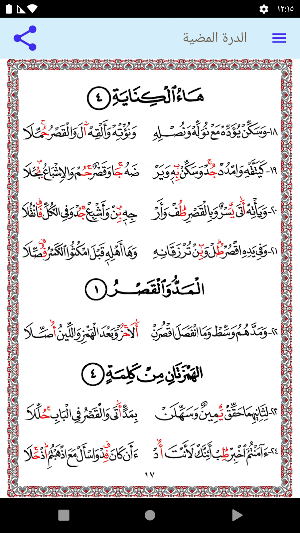 ١٢:١٥
الدرة المضية
هَاءُ الْكِنَايَةِ (٤)
١٨- وَسَكِّنْ يُؤَدِّهْ مَعْ نُوَلِّهْ وَنُصْلِهِ وَنُؤْتِهْ وَأَلْقِهْ آلَ وَالْقَصْرُ حُمِّلَا
١٩- كَيَتَّقِهْ وَامْدُدْ جُدْ وَسَكِّنْ بِهِ وَيَرْ ضَهُ جَا وَقَصْرٌ حُمْ وَالِاشْبَاعُ بُجِّلَا
٢٠- وَيَأْتِهِ أَتَى يُسْرٌ وَبِالْقَصْرِ طُفْ وَأَرْ جِهِ بِنْ وَأَشْبِعْ جُدْ وَفِي الْكُلِّ فَانْقُلَا
٢١- وَفِي يَدِهِ اقْصُرْ طُلْ وَبِنْ تُرْزَقَانِهِ وَهَا أَهْلِهِ قَبْلَ امْكُثُوا الْكَسْرُ فُصِّلَا
الْمَدُّ وَالْقَصْرُ (١)
٢٢- وَمَدَّهُمُ وَسِّطْ وَمَا انْفَصَلَ اقْصُرَنْ أَلَا حُزْ وَبَعْدَ الْهَمْزِ وَاللِّينُ أُصِّلَا
الْهَمْزَتَانِ مِنْ كَلِمَةٍ (٤)
٢٣- لِثَانِيهِمَا حَقِّقْ يَمِينٌ وَسَهِّلَنْ بِمَدٍّ أَتَى وَالْقَصْرُ فِي الْبَابِ حُلِّلَا
٢٤- ءَآمَنْتُمُ اخْبِرْ طِبْ أَئِنَّكَ لَأَنْتَ أُدْ ءَأَنْ كَانَ فِدْ وَاسْأَلْ مَعَ اذْهَبْتُمُ اذْ حَلَا
١٧